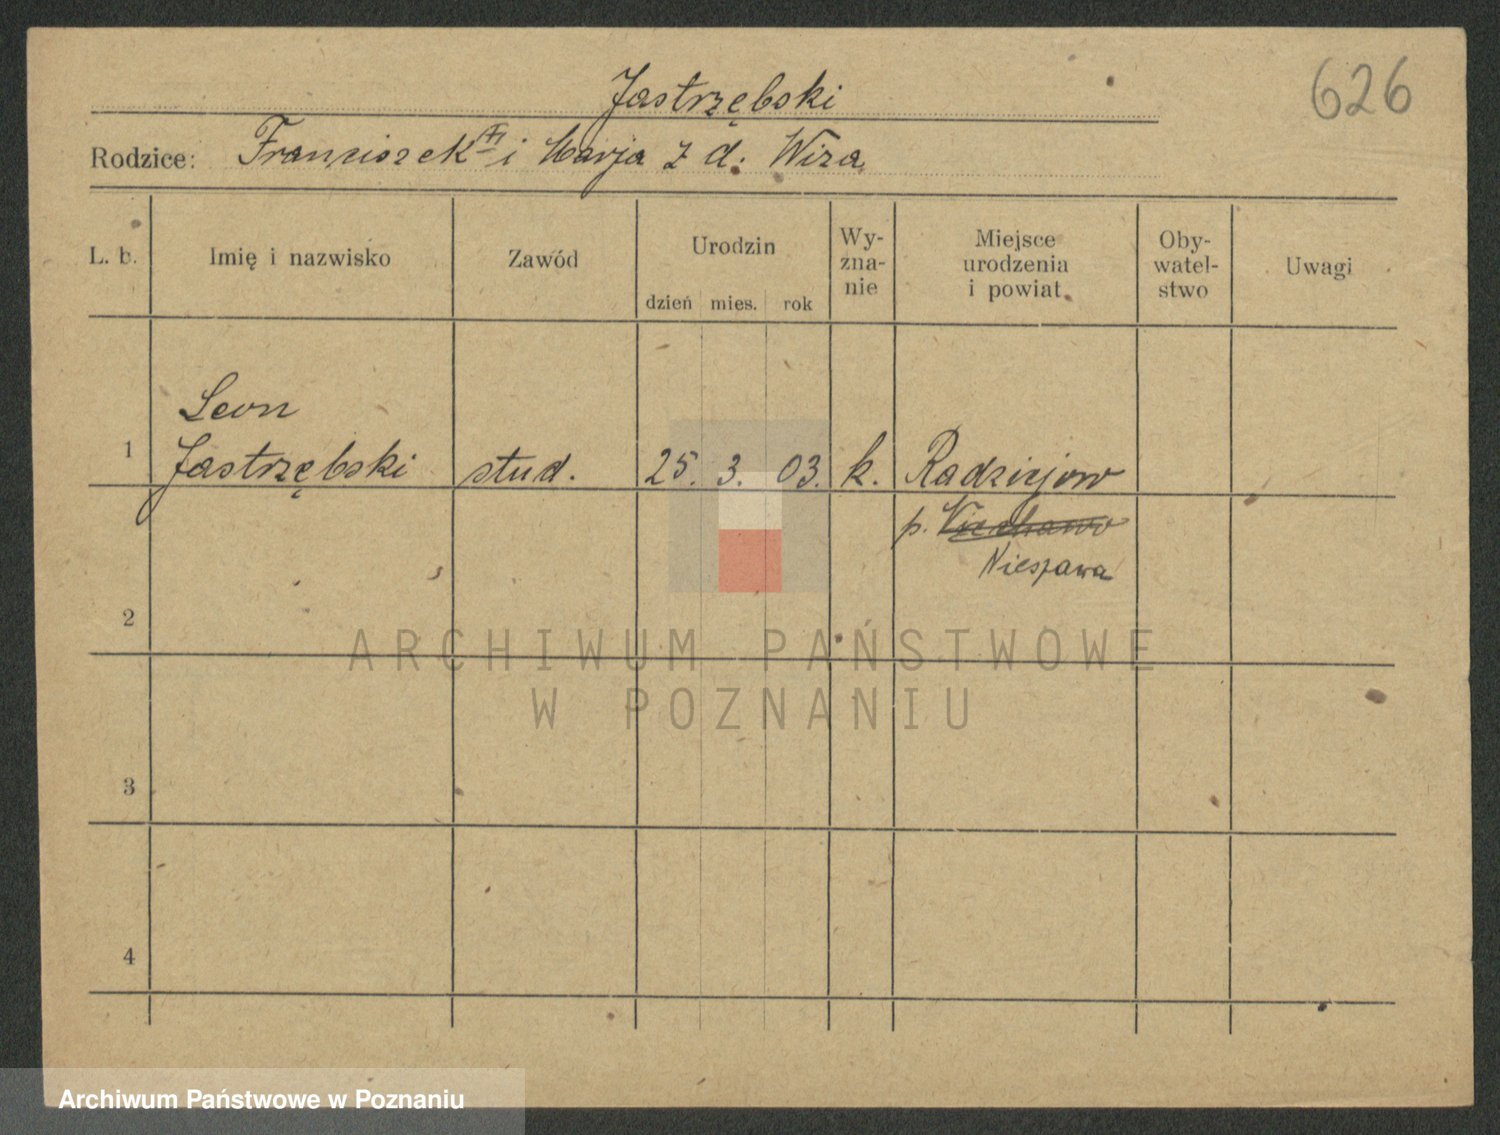 626
Jastrzębski
Rodzice: Franciszek i Marja z d. Wiza
L. b.
Imię i nazwisko
Zawód
Urodzin
dzień mies. rok
Wy-
zna-
nie
Miejsce
urodzenia
i powiat
Oby-
watel-
stwo
Uwagi
1
Leon
Jastrzębski
stud.
25. 3. 03.
k.
Radziejow
p.
Nieszawa
2
3
4
ARCHIWUM PAŃSTWOWE
W POZNANIU
Archiwum Państwowe w Poznaniu